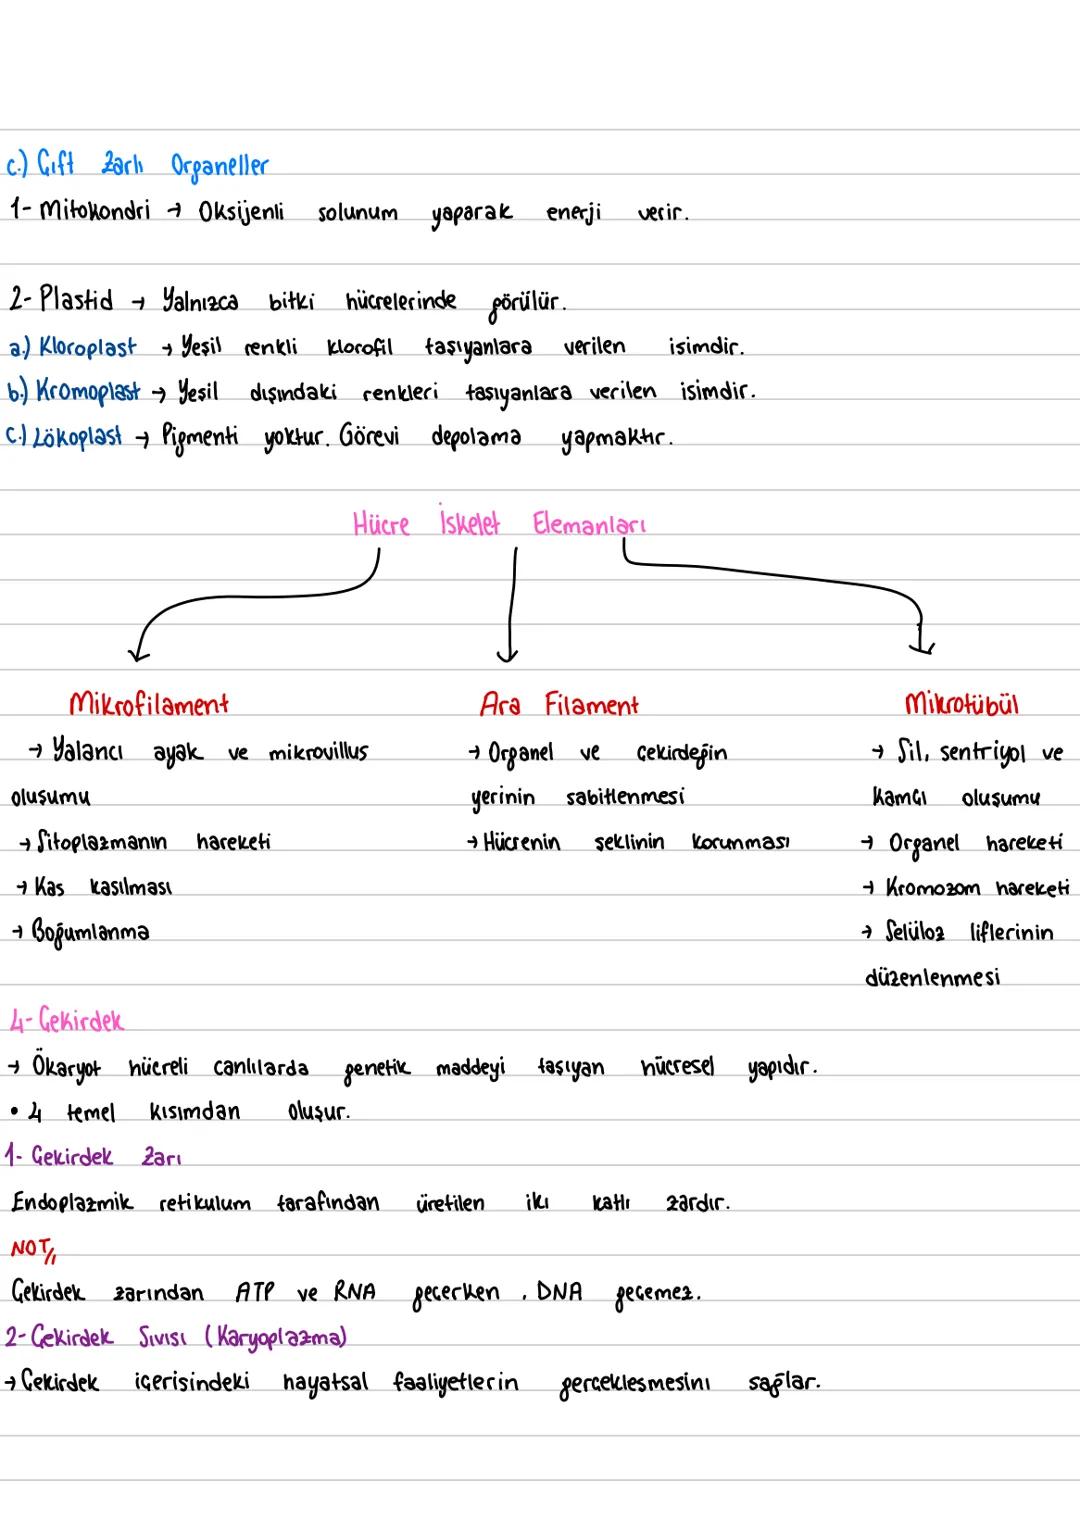 c.) Çift Zarlı Organeller
1- Mitokondri → Oksijenli solunum yaparak enerji verir.
2- Plastid → Yalnızca bitki hücrelerinde görülür.
a.) Kloroplast → Yeşil renkli klorofil taşıyanlara verilen isimdir.
b.) Kromoplast → Yeşil dışındaki renkleri taşıyanlara verilen isimdir.
c.) Lökoplast → Pigmenti yoktur. Görevi depolama yapmaktır.
Hücre İskelet Elemanları
Mikrofilament
→ Yalancı ayak ve mikrovillus
oluşumu
→ Sitoplazmanın hareketi
→ Kas kasılması
→ Boğumlanma
Ara Filament
→ Organel ve çekirdeğin
yerinin sabitlenmesi
→ Hücrenin şeklinin korunması
Mikrotübül
→ Sil, sentriyol ve
kamçı oluşumu
→ Organel hareketi
→ Kromozom hareketi
→ Selüloz liflerinin
düzenlenmesi
4- Çekirdek
→ Ökaryot hücreli canlılarda genetik maddeyi taşıyan hücresel yapıdır.
• 4 temel kısımdan oluşur.
1- Çekirdek Zarı
Endoplazmik retikulum tarafından üretilen iki katlı zardır.
NOT//
Çekirdek zarından ATP ve RNA geçerken, DNA geçemez.
2- Çekirdek Sıvısı (Karyoplazma)
→ Çekirdek içerisindeki hayatsal faaliyetlerin gerçekleşmesini sağlar.